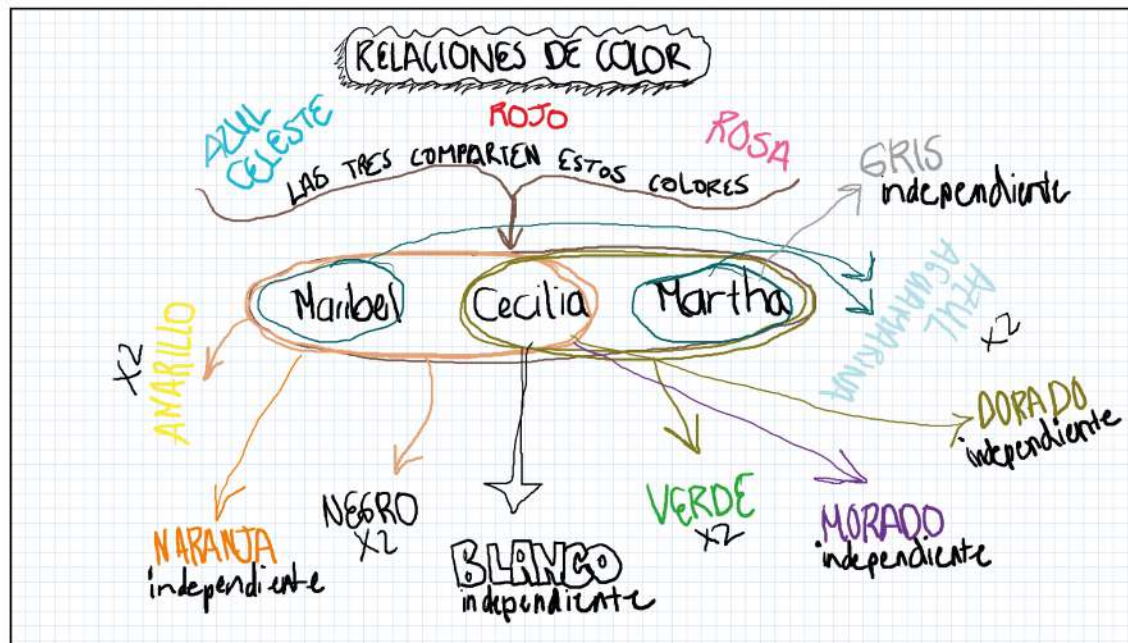 RELACIONES DE COLOR
AZUL
CELESTE
ROJO
ROSA
LAS TRES COMPARTEN ESTOS COLORES
GRIS
independiente
Maribel
Cecilia
Martha
AZUL
AGUAMARINA
X2
AMARILLO
X2
DORADO
independiente
NARANJA
independiente
NEGRO
X2
BLANCO
independiente
VERDE
X2
MORADO
independiente